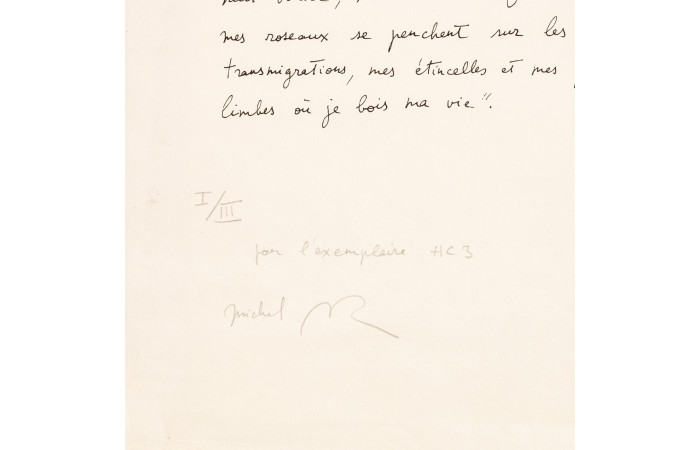 mes roseaux se penchent sur les
transmigrations, mes étincelles et mes
limbes où je bois ma vie".
I/III
pour l'exemplaire HC3
michel